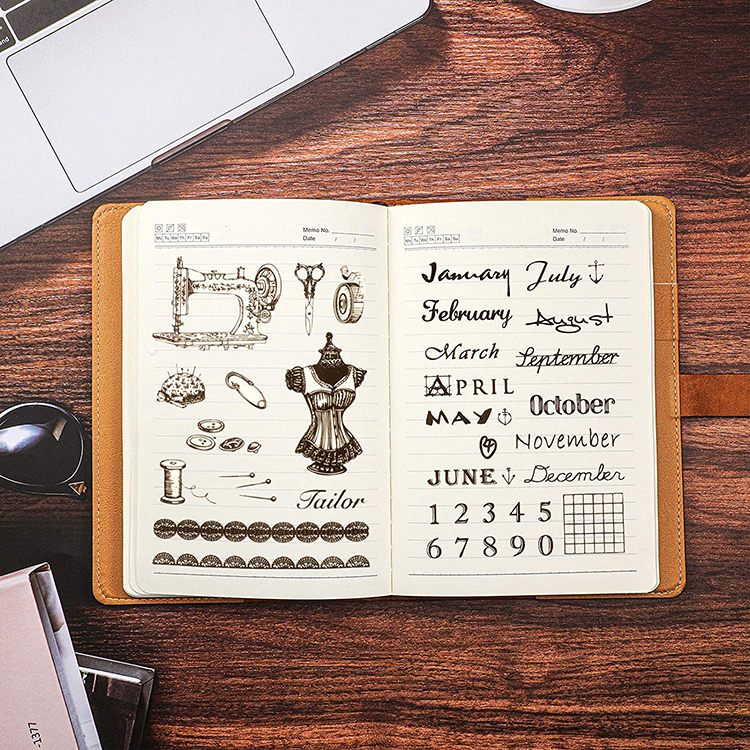 Memo No.
Mo Tu We Th Fr Sa Su
Date / /
Tailor
Memo No.
Mo Tu We Th Fr Sa Su
Date / /
January July
February August
March September
APRIL October
MAY November
JUNE December
1 2 3 4 5
6 7 8 9 0
-1377